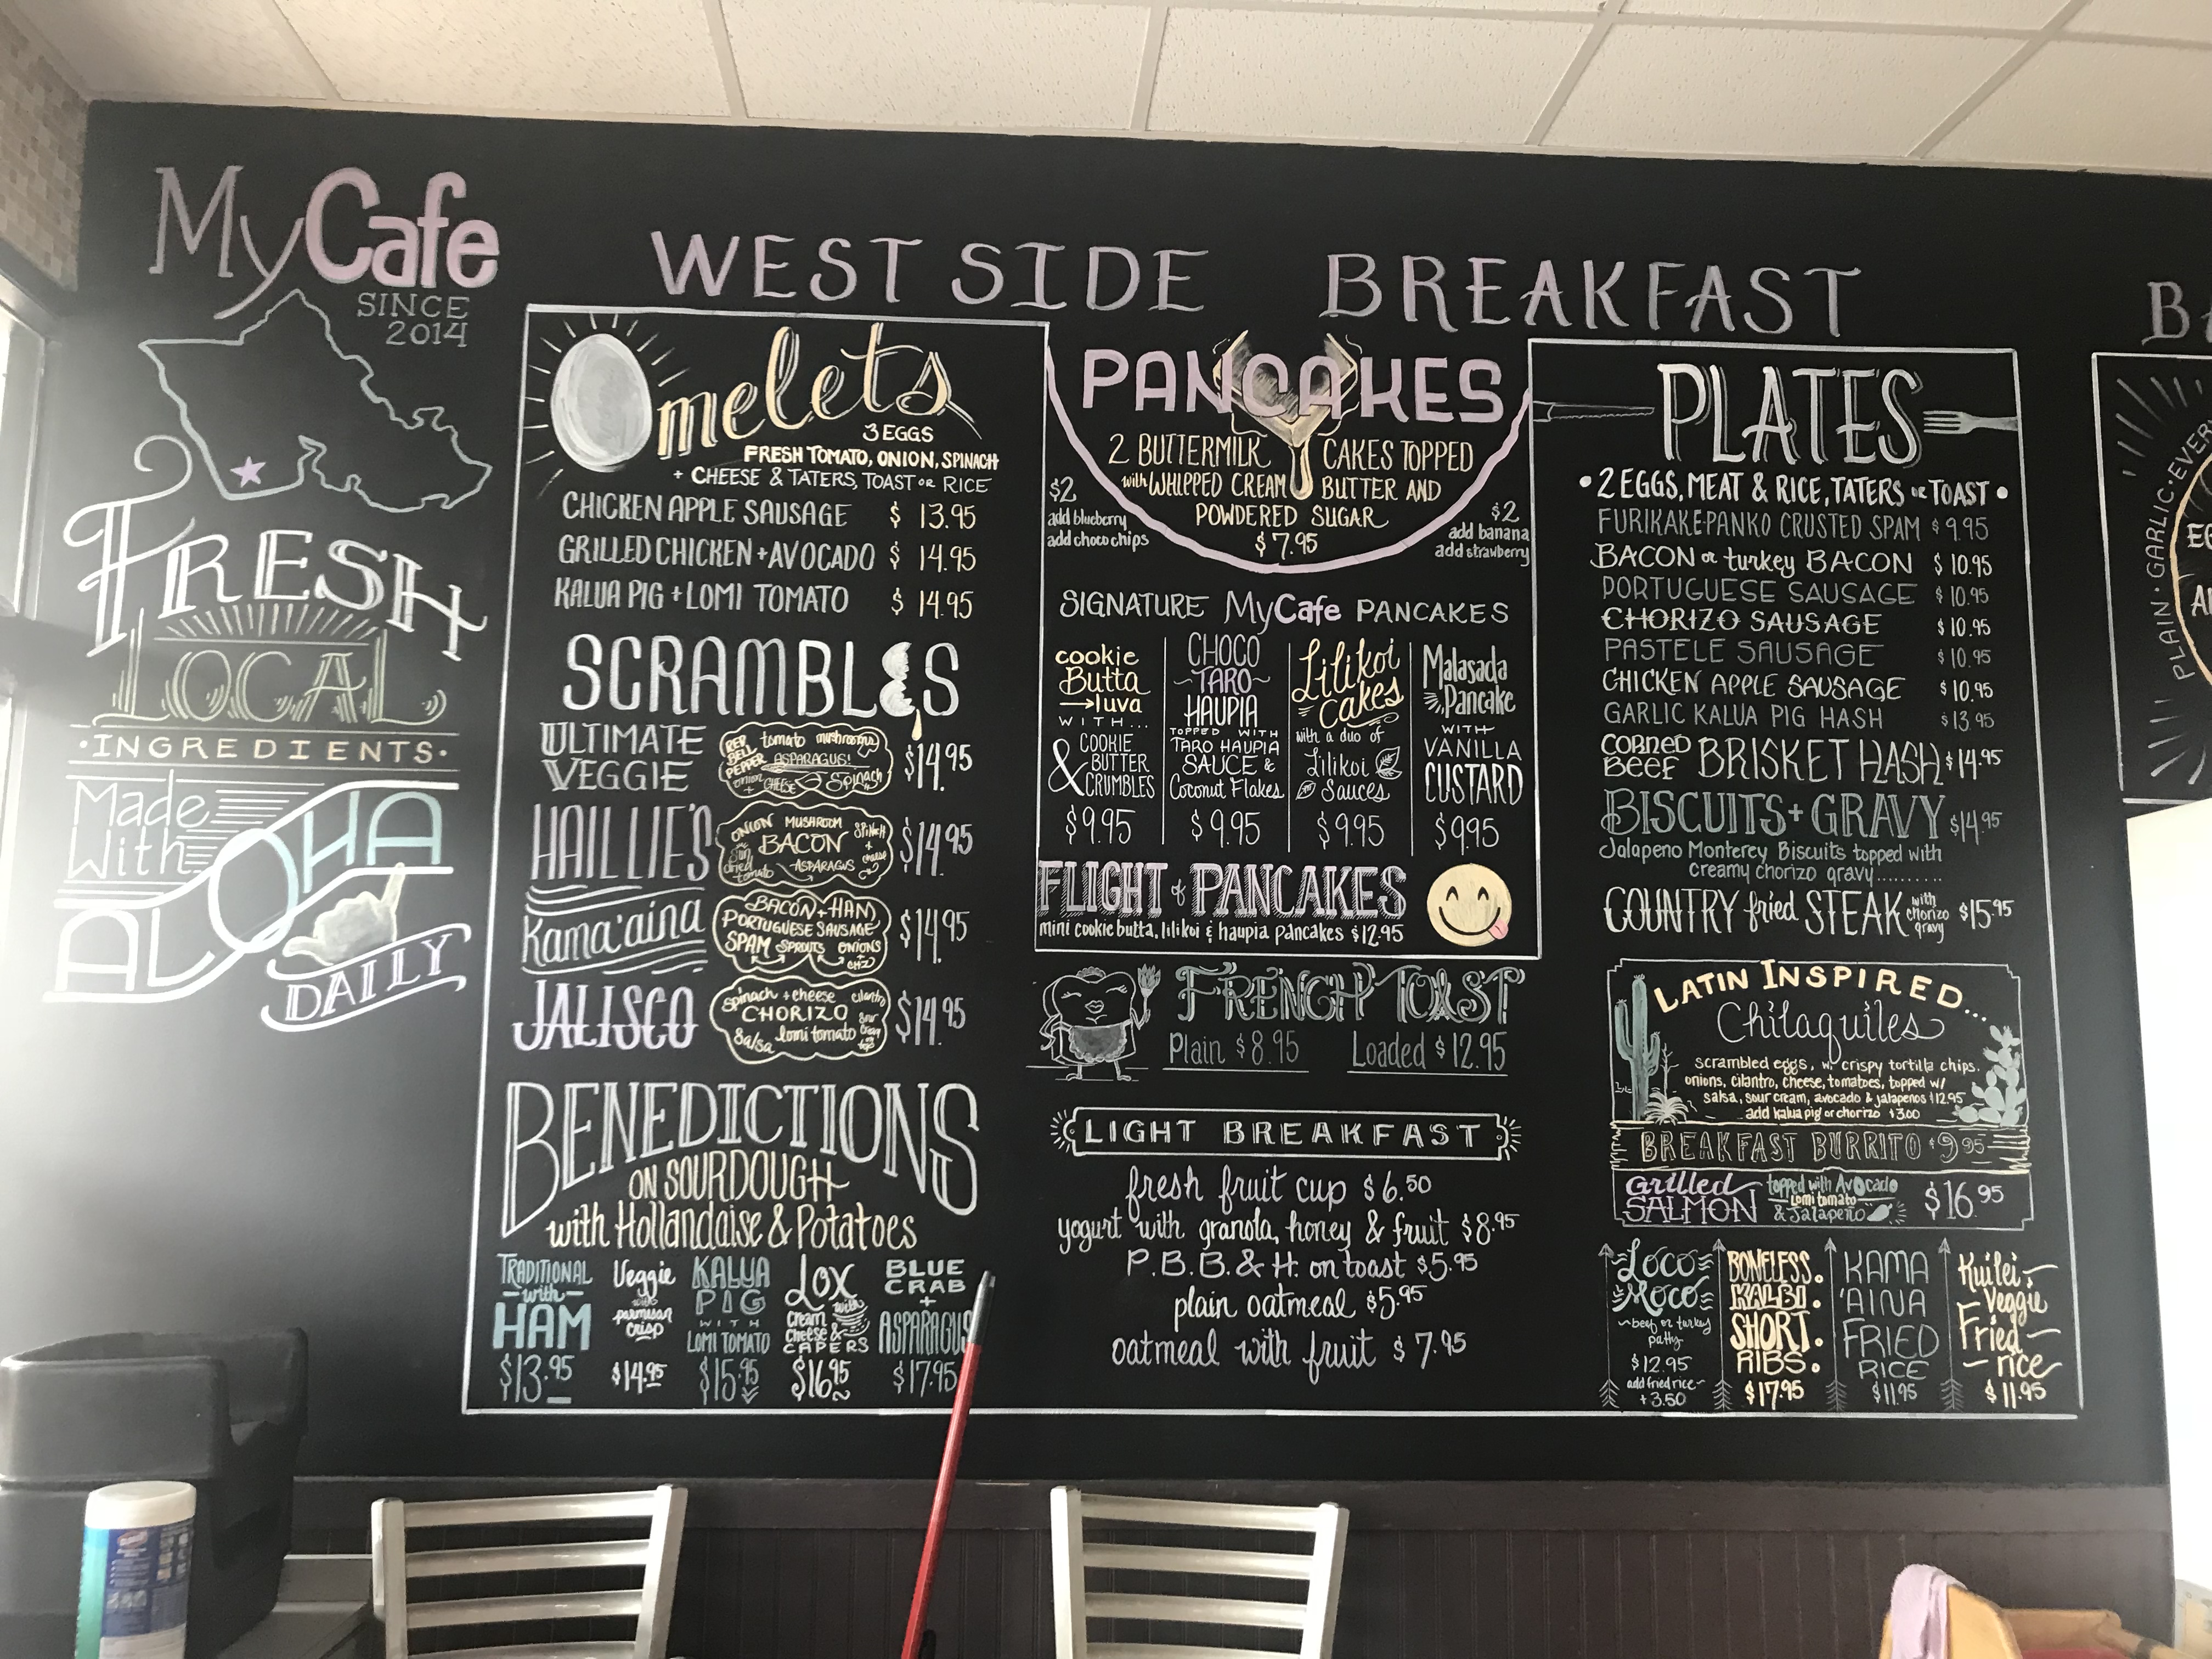 MyCafe
SINCE
2014
FRESH
LOCAL
·INGREDIENTS·
Made
With
ALOHA
DAILY
WEST SIDE BREAKFAST
Omelets
3 EGGS
FRESH TOMATO, ONION, SPINACH
+ CHEESE & TATERS, TOAST or RICE
CHICKEN APPLE SAUSAGE $ 13.95
GRILLED CHICKEN + AVOCADO $ 14.95
KALUA PIG + LOMI TOMATO $ 14.95
SCRAMBLES
ULTIMATE
VEGGIE
RED
BELL
PEPPER
tomato mushrooms
ASPARAGUS!
onion
+ CHEESE Spinach
$14.95
HAILLIE'S
ONION MUSHROOM SPINACH
BACON
+ cheese
sun
dried
tomato
ASPARAGUS
$14.95
Kama'aina
BACON + HAM
PORTUGUESE SAUSAGE
SPAM SPROUTS ONIONS
+
CHZ
$14.95
JALISCO
spinach + cheese cilantro
CHORIZO
Salsa lomi tomato
sour
cream
$14.95
BENEDICTIONS
ON SOURDOUGH
with Hollandaise & Potatoes
TRADITIONAL
with
HAM
$13.95
Veggie
with
parmesan
crisp
$14.95
KALUA
PIG
WITH
LOMI TOMATO
$15.95
LOX
with
Cream
Cheese &
CAPERS
$16.95
BLUE
CRAB
+
ASPARAGUS
$17.95
PANCAKES
2 BUTTERMILK CAKES TOPPED
with WHIPPED CREAM BUTTER AND
POWDERED SUGAR
$7.95
$2
add blueberry
add choco chips
$2
add banana
add strawberry
SIGNATURE MyCafe PANCAKES
cookie
Butta
luva
WITH...
& COOKIE
BUTTER
CRUMBLES
$9.95
CHOCO
TARO
HAUPIA
TOPPED WITH
TARO HAUPIA
SAUCE &
Coconut Flakes
$9.95
Lilikoi
Cakes
with a duo of
Lilikoi
Sauces
$9.95
Malasada
Pancake
WITH
VANILLA
CUSTARD
$9.95
FLIGHT of PANCAKES
mini cookie butta, lilikoi & haupia pancakes $12.95
FRENCH TOAST
Plain $8.95 Loaded $12.95
LIGHT BREAKFAST
fresh fruit cup $6.50
yogurt with granola, honey & fruit $8.95
P.B.B. & H. on toast $5.95
plain oatmeal $5.95
oatmeal with fruit $7.95
PLATES
• 2 EGGS, MEAT & RICE, TATERS or TOAST •
FURIKAKE-PANKO CRUSTED SPAM $9.95
BACON or turkey BACON $10.95
PORTUGUESE SAUSAGE $10.95
CHORIZO SAUSAGE $10.95
PASTELE SAUSAGE $10.95
CHICKEN APPLE SAUSAGE $10.95
GARLIC KALUA PIG HASH $13.95
CORNED
BEEF BRISKET HASH $14.95
BISCUITS + GRAVY $14.95
Jalapeno Monterey Biscuits topped with
creamy chorizo gravy..........
COUNTRY fried STEAK with chorizo gravy $15.95
LATIN INSPIRED....
Chilaquiles
scrambled eggs, w. crispy tortilla chips.
onions, cilantro, cheese, tomatoes, topped w/
salsa, sour cream, avocado & jalapenos $12.95
add kalua pig or chorizo $3.00
BREAKFAST BURRITO $9.95
Grilled
SALMON
topped with Avocado
lomi tomato
& Jalapeño
$16.95
LOCO
MOCO
~beef or turkey
patty
$12.95
add fried rice~
+3.50
BONELESS
KALBI
SHORT
RIBS
$17.95
KAMA
'AINA
FRIED
RICE
$11.95
Kuilei
Veggie
Fried
rice
$11.95
PLAIN · GARLIC · EVERY